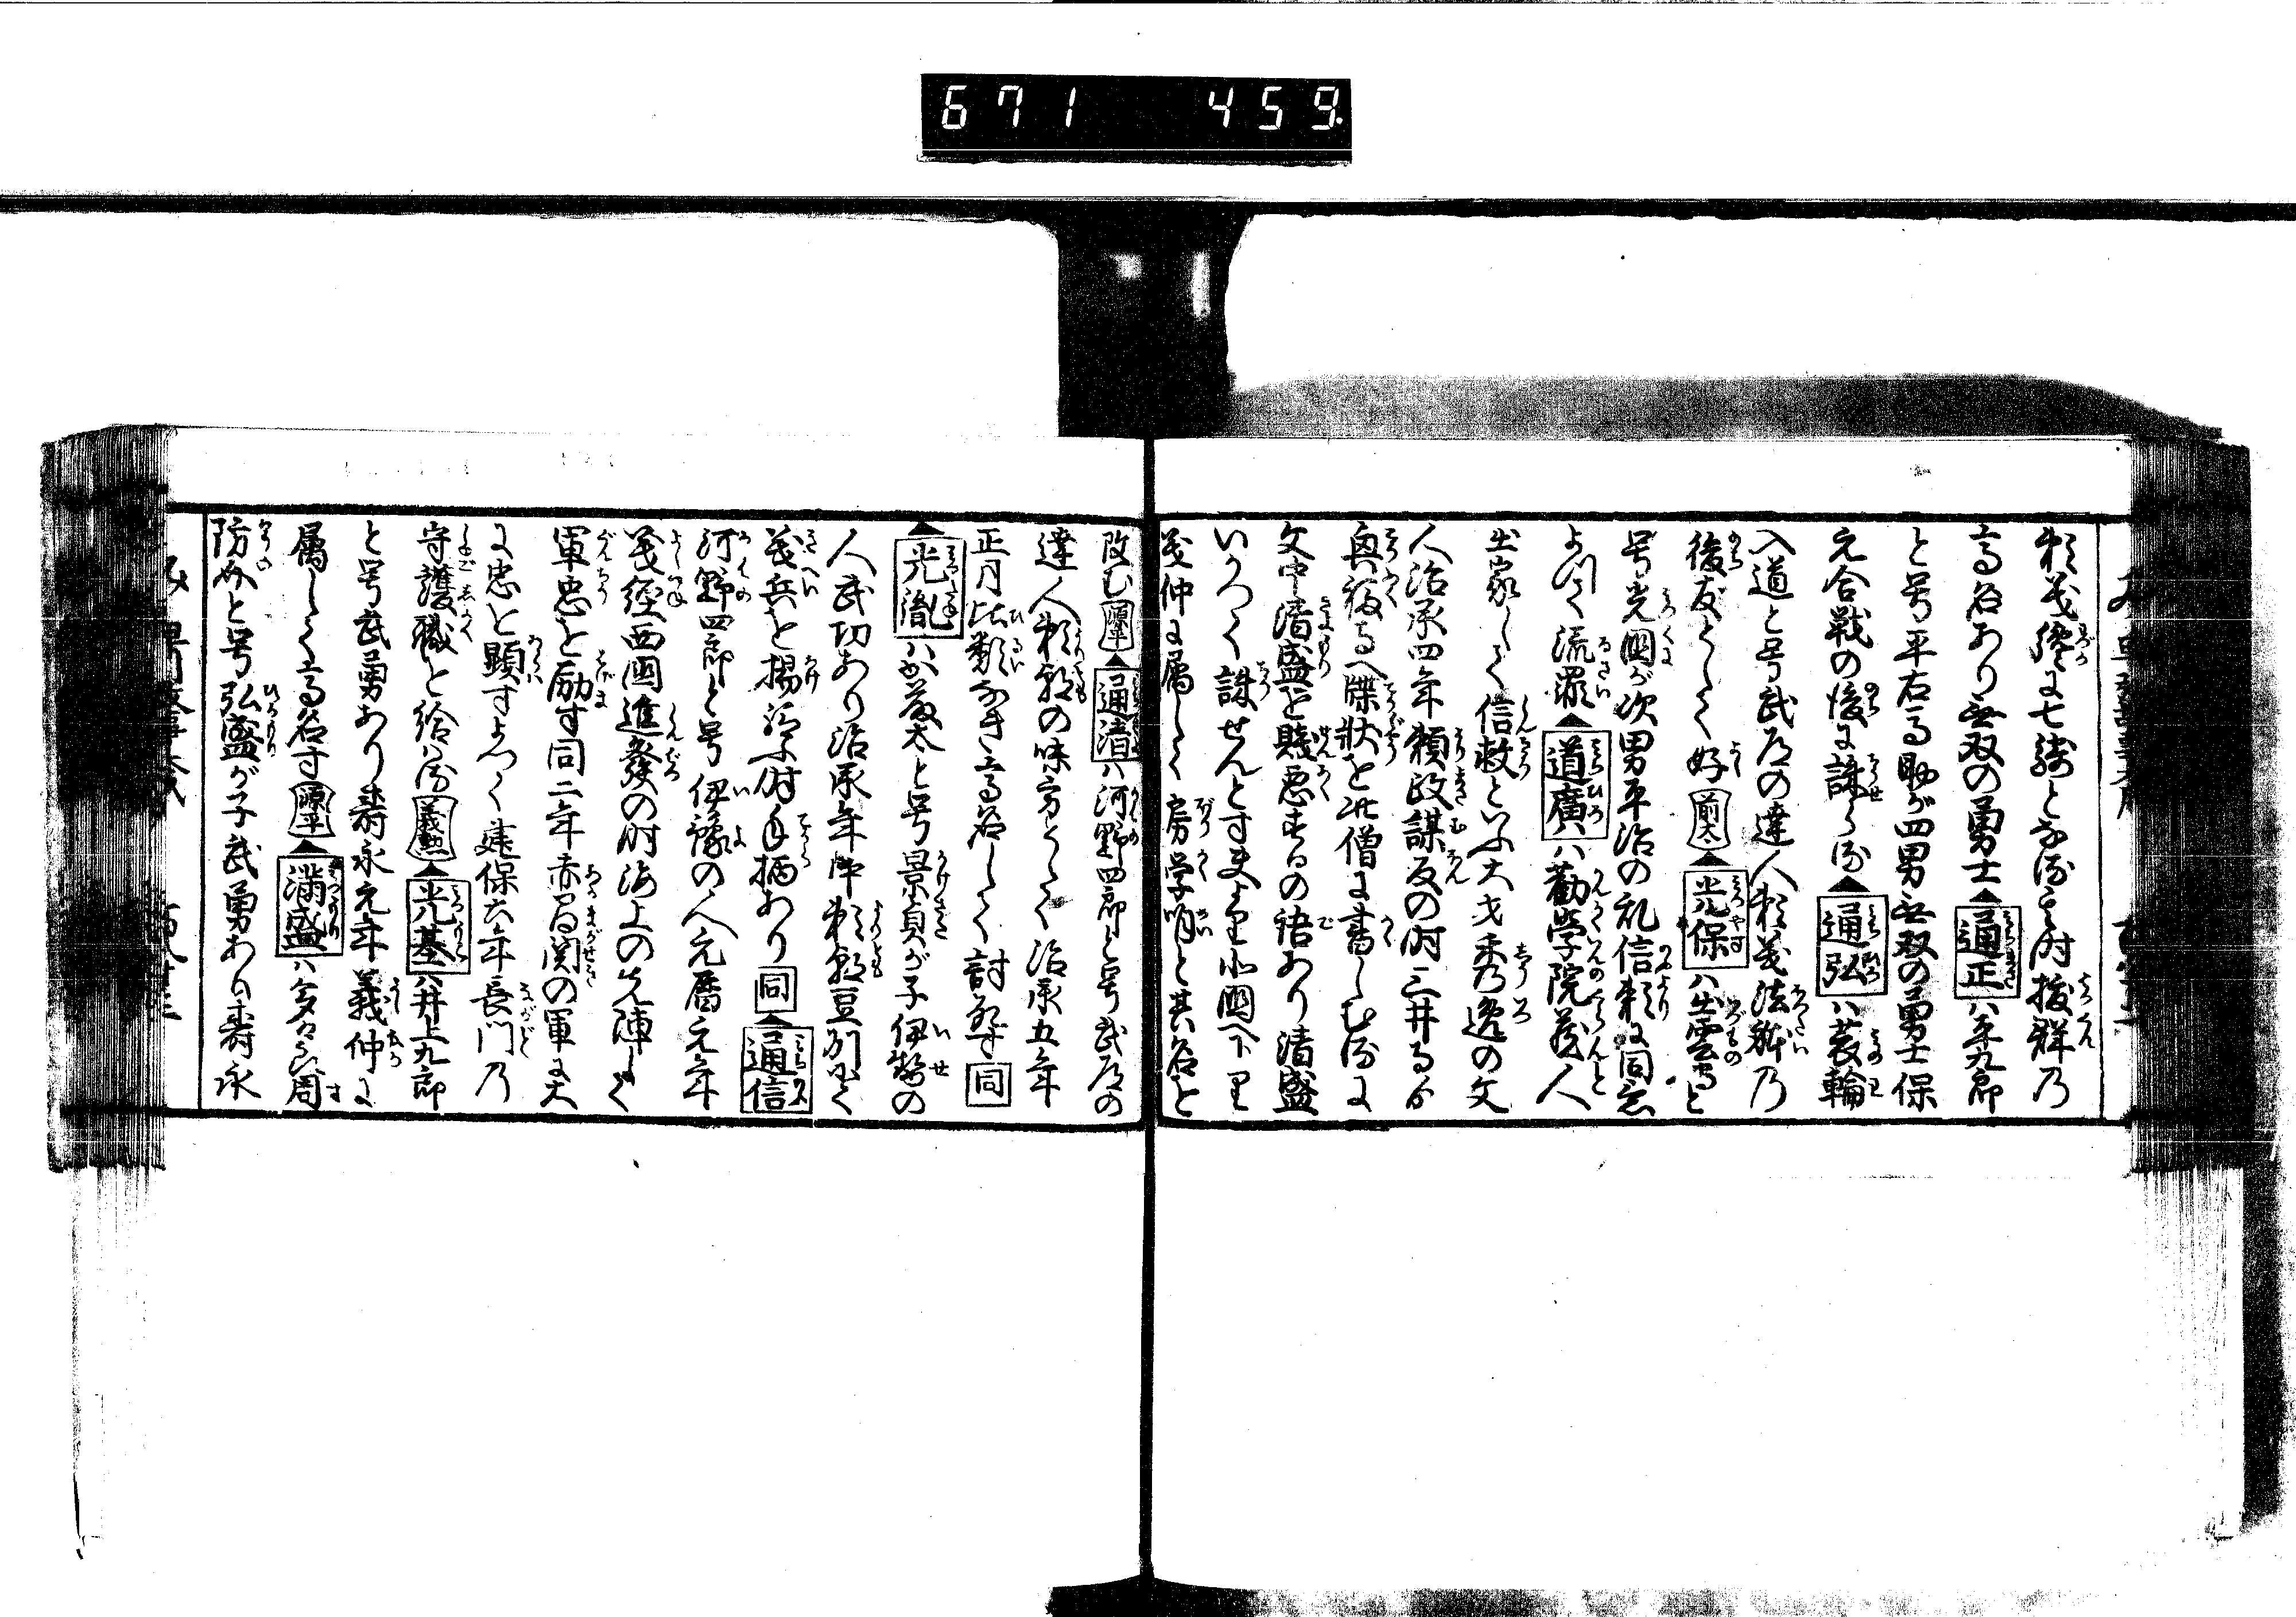 671 459
頼義纔に七騎となる時抜群乃
高名あり無双の勇士▲通正ハ平九郎
と号平右馬助が四男無双の勇士保
元合戦の後に誅らる▲通弘ハ蓑輪
入道と号武者の達人頼義法躰乃
後友として好▲光保ハ出雲守と
号光國が次男平治の乱信頼に同意
よつて流罪▲道廣ハ勧学院蔵人
出家して信救といふ大才秀逸の文
人治承四年頼政謀反の時三井寺より
興福寺へ牒状を此僧に書しむるに
文中清盛を賤悪するの語あり清盛
いかつて誅せんとす夫より北國へ下り
義仲に属して房学明と其名を
改む▲通清ハ河野四郎と号武者の
達人頼朝の味方として治承五年
正月比類なき高名して討死す同
▲光胤ハ加藤太と号景貞が子伊勢の
人武功あり治承年中頼朝豆州にて
義兵を揚給ふ時手柄あり同▲通信
河野四郎と号伊豫の人元暦元年
義經西國進發の時海上の先陣して
軍忠を励す同二年赤間関の軍に大
に忠を顕すよつて建保六年長門乃
守護職を給はる義勲▲光基ハ井上九郎
と号武勇あり壽永元年義仲に
属して高名す▲満盛ハ多々良周
防介と号弘盛が子武勇あり壽永